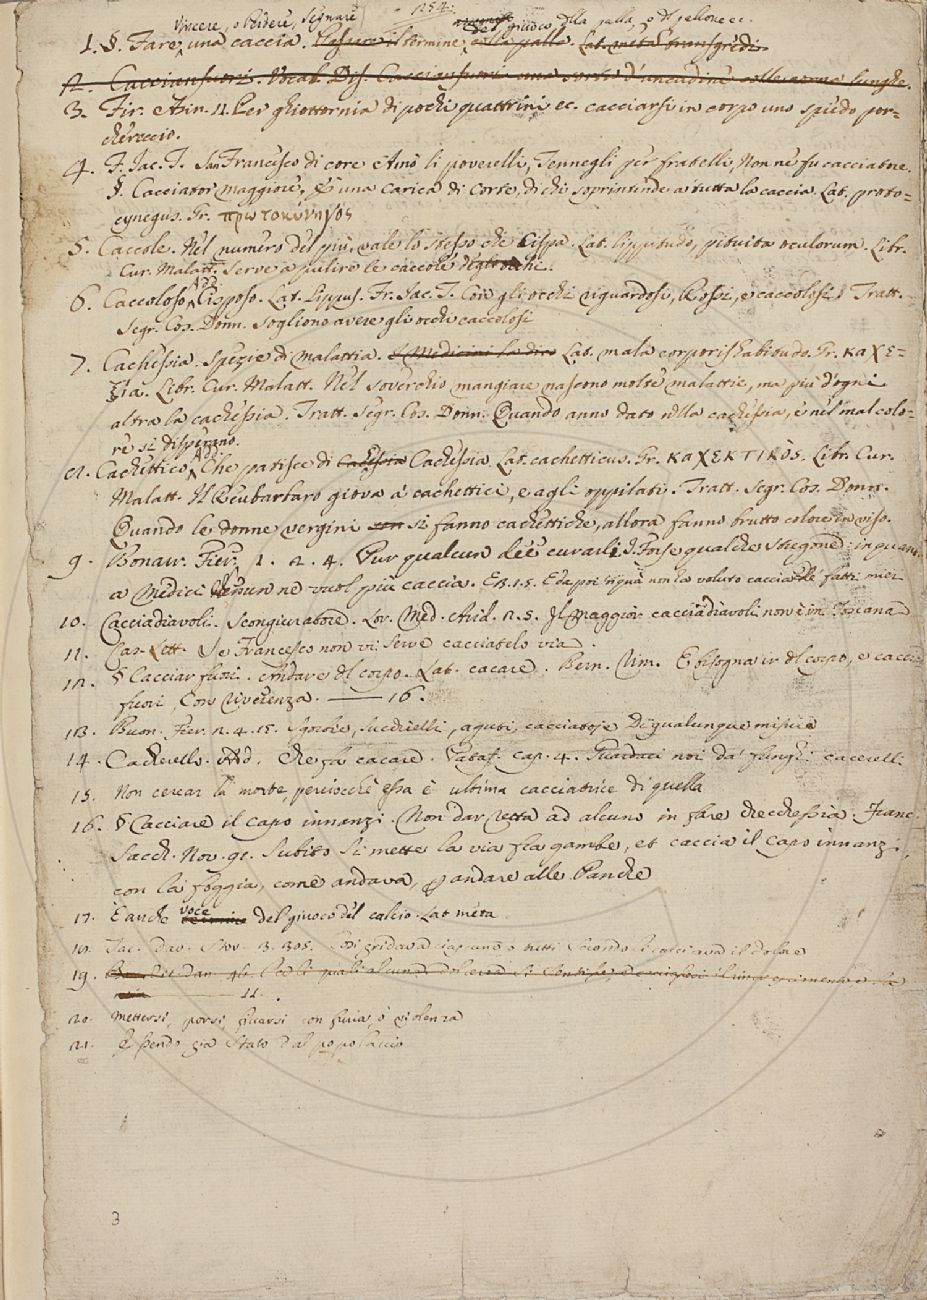 1254.
Vincere, o Perdere, Segnare
del giuoco della palla, o del pallone ec.
1. §. Fare una caccia. Passare il termine, colla palla. Lat. metā transgredi.
2. Cacciensuori. Vocab. Dis. Cacciensuori una sorte d'ancudine colle corna lunghe.
3. Fir. Asin. 11. Per ghiottornia di pochi quattrini ec. cacciarsi in corpo uno spiedo por=
chereccio.
4. F. Jac. T. San Francesco di core Amò li poverelli, Tennegli per fratelli, Non ne fu cacciatore.
§. Cacciator maggiore, È una carica di Corte, di chi soprintende a tutta la caccia. Lat. proto=
cynegus. Gr. πρωτοκύνηγος
5. Caccole. Nel numero del più, vale lo stesso che Cispa. Lat. lippitudo, pituita oculorum. Libr.
Cur. Malatt. Serve a pulire le caccole degli occhi.
6. Caccoloso Add. Cisposo. Lat. Lippus. Fr. Jac. T. Con gli occhi riguardosi, Rossi, e caccolosi. Tratt.
Segr. Cos. Donn. Sogliono avere gli occhi caccolosi
7. Cachessia. Spezie di malattia. Lat. mala corporis habitudo. Gr. καχε=
ξία. Libr. Cur. Malatt. Nel soverchio mangiare nascono molte malattie, ma più d'ogni
altra la cachessia. Tratt. Segr. Cos. Donn. Quando anno dato nella cachessia, e nel mal colo=
re si disperano.
8. Cachettico Add. Che patisce di Cachessia. Lat. cachetticus. Gr. καχεκτικὸς. Libr. Cur.
Malatt. Il Reubarbaro giova a' cachettici, e agli oppilati. Tratt. Segr. Cos. Donn.
Quando le donne vergini si fanno cachettiche, allora fanno brutto colore in viso.
9. Bonarr. Fier. 1. 2. 4. Pur qualcun dee curarli. Forse qualche stregone: in quanto
a Medici niun ne vuol più caccia. E 3. 1. 5. E da poi non ha voluto cacciar de' fatti miei
10. Cacciadiavoli. Scongiuratore. Lor. Med. Arid. 2. 5. Il maggior cacciadiavoli non è in Toscana
11. Car. Lett. Se Francesco non vi serve cacciatelo via.
12. § Cacciar fuori. andare del corpo. Lat. cacare. Bern. Rim. E bisogna ir del corpo, e cacciar
fuori, Con riverenza. —— 16.
13. Buon. Fier. 2. 4. 15. Succhielli, aguti, cacciatoje Di qualunque misure
14. Cacherello. Add. Che fa cacare. Pataf. cap. 4. Guardaci noi da' funghi cacerelli
15. Non cercar la morte, perciocchè essa è ultima cacciatrice di quella
16. § Cacciare il capo innanzi. Non dar retta ad alcuno in fare checchessia. Franc.
Sacch. Nov. 91. Subito si mette la via fra gambe, et caccia il capo innanzi,
con la foggia, come andava, p andare alle Panche
17. È anche voce del giuoco del calcio. Lat. meta
18. Jac. Dav. Stor. 3. 305.
19.
11.
20. Mettersi, porsi, ficcarsi con furia, o violenza
21. Essendo già stato dal popolaccio
3